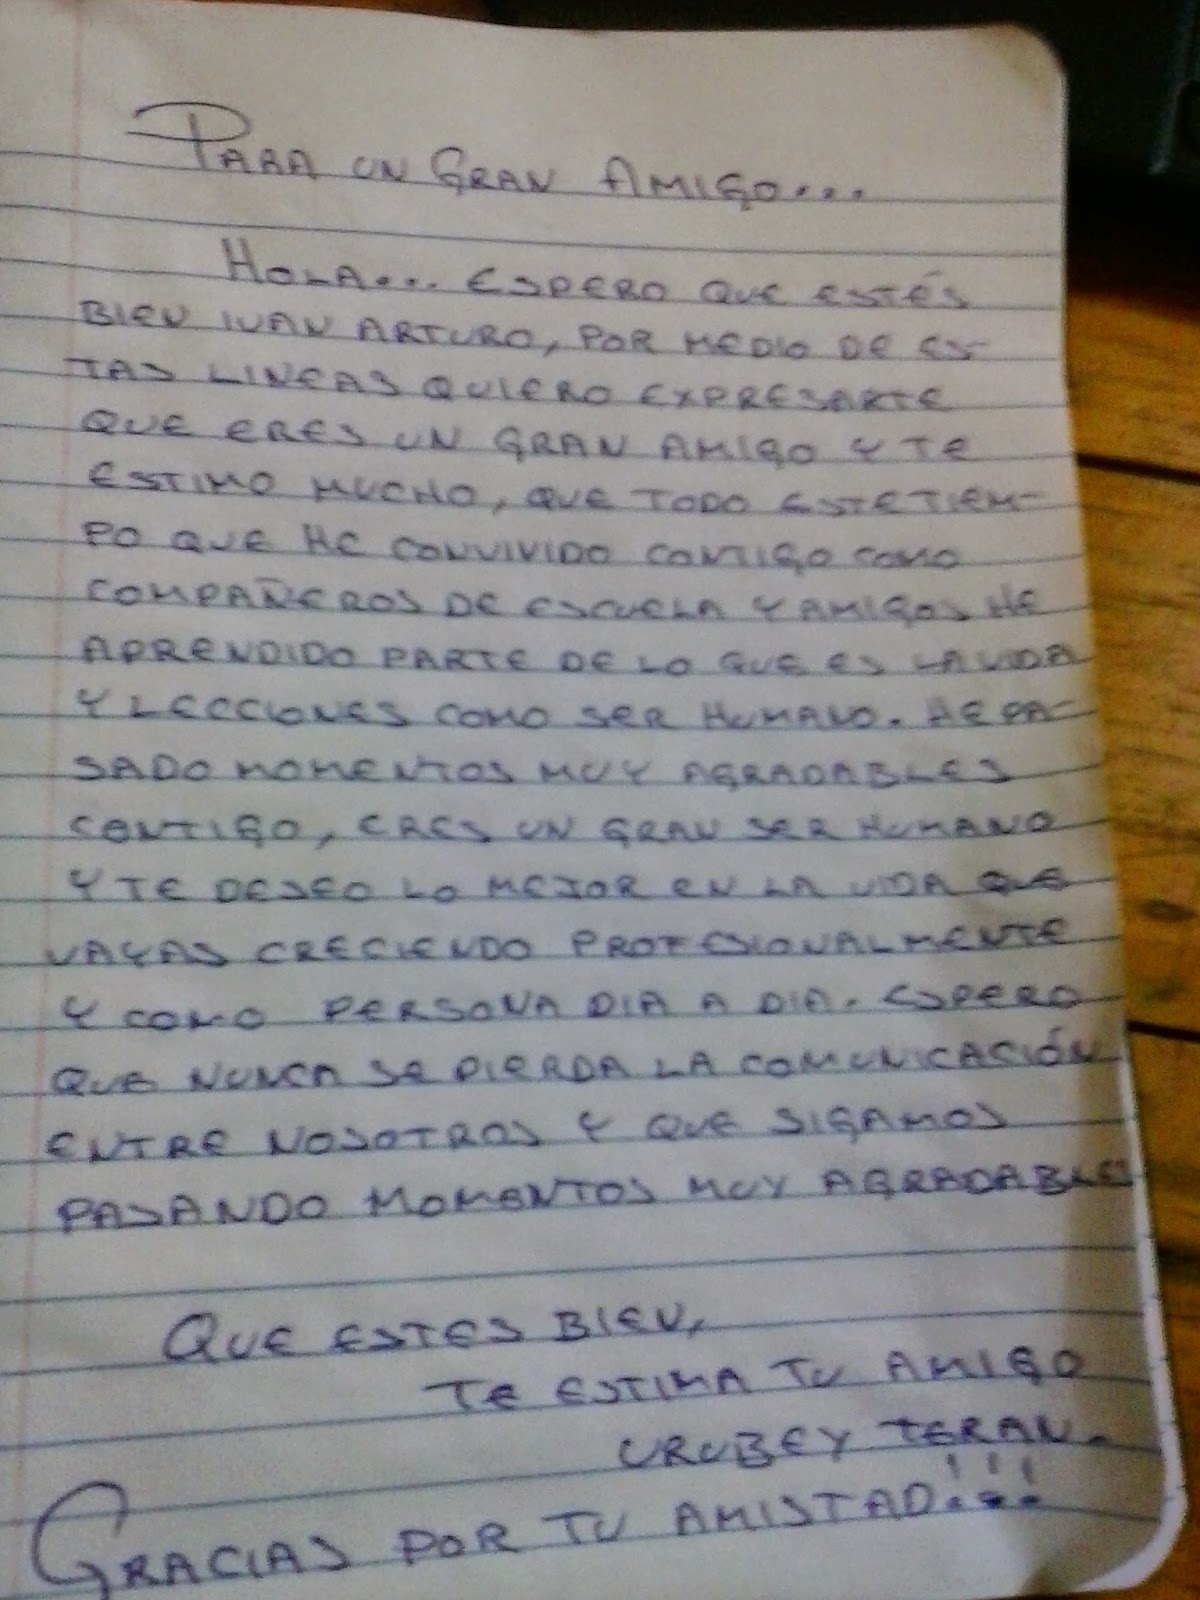 PARA UN GRAN AMIGO...
HOLA... ESPERO QUE ESTÉS
BIEN IVAN ARTURO, POR MEDIO DE ES-
TAS LINEAS QUIERO EXPRESARTE
QUE ERES UN GRAN AMIGO Y TE
ESTIMO MUCHO, QUE TODO ESTE TIEM-
PO QUE HE CONVIVIDO CONTIGO COMO
COMPAÑEROS DE ESCUELA Y AMIGOS HE
APRENDIDO PARTE DE LO QUE ES LA VIDA
Y LECCIONES COMO SER HUMANO. HE PA-
SADO MOMENTOS MUY AGRADABLES
CONTIGO, ERES UN GRAN SER HUMANO
Y TE DESEO LO MEJOR EN LA VIDA QUE
VAYAS CRECIENDO PROFESIONALMENTE
Y COMO PERSONA DIA A DIA. ESPERO
QUE NUNCA SE PIERDA LA COMUNICACIÓN
ENTRE NOSOTROS Y QUE SIGAMOS
PASANDO MOMENTOS MUY AGRADABLES
QUE ESTES BIEN,
TE ESTIMA TU AMIGO
URUBEY TERAN.
GRACIAS POR TU AMISTAD!!!